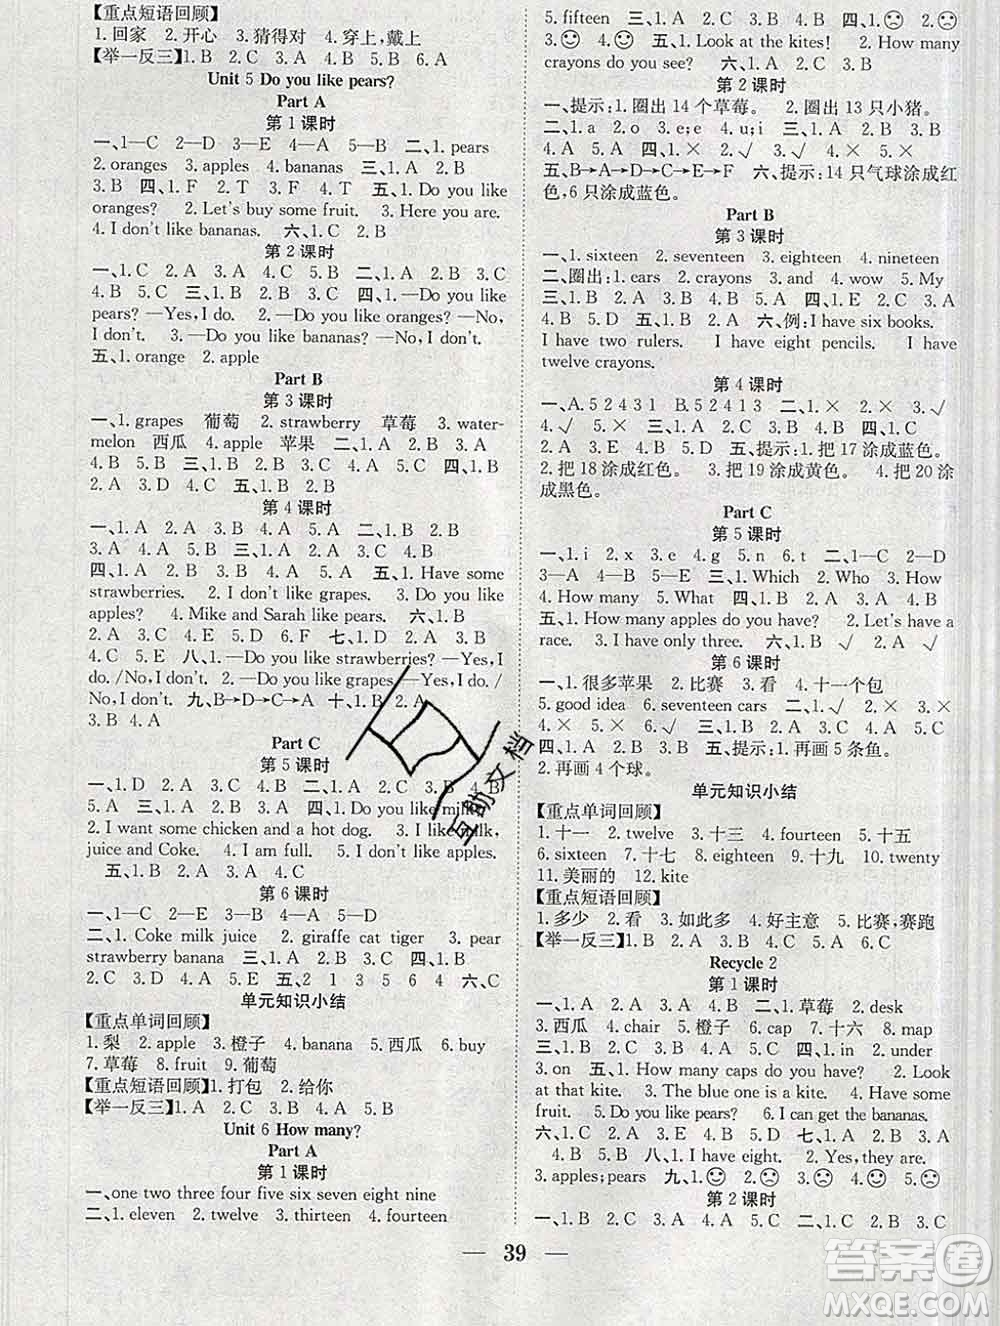 【重点短语回顾】
1.回家 2.开心 3.猜得对 4.穿上,戴上
【举一反三】1.B 2.C 3.A 4.B 5.B 6.A
Unit 5 Do you like pears?
Part A
第1课时
一、1—C 2—D 3—E 4—A 5—B 二、1.pears
2.oranges 3.apples 4.bananas 三、1.A 2.B
3.B 四、1.F 2.T 3.F 4.T 五、1.Do you like
oranges? 2.Let's buy some fruit. 3.Here you are.
4.I don't like bananas. 六、1.C 2.B
第2课时
一、1.C 2.A 3.A 4.C 5.B 二、1.B 2.A
3.B 4.C 5.A 三、1.B 2.A 四、1.—Do you like
pears? —Yes,I do. 2.—Do you like oranges? —No,
I don't. 3.—Do you like bananas? —No,I don't.
五、1.orange 2.apple
Part B
第3课时
一、1.grapes 葡萄 2.strawberry 草莓 3.water-
melon 西瓜 4.apple 苹果 二、1.B 2.A 3.A
4.B 5.B 三、1.B 2.C 3.A 4.C 5.B 四、1.B
2.A 3.A 4.C 五、1.B 2.B
第4课时
一、1.A 2.A 3.B 4.A 5.A 二、1.B 2.A
3.A 4.A 5.A 三、1.B 2.B 3.A 4.B 5.B
四、1.A 2.A 3.B 4.A 五、1.Have some
strawberries. 2.I don't like grapes. 3.Do you like
apples? 4.Mike and Sarah like pears. 六、1.B
2.A 3.C 4.E 5.D 七、1.D 2.B 3.C
4.A 5.E 八、1.—Do you like strawberries? —Yes,I
do./No,I don't. 2.—Do you like grapes —Yes,I do./
No,I don't. 九、B→D→C→A 十、1.B 2.A
3.B 4.A
Part C
第5课时
一、1.D 2.A 3.B 二、1.A 2.C 3.B 4.B
5.A 三、1.B 2.A 3.A 四、1.Do you like milk?
2.I want some chicken and a hot dog. 3.I like milk,
juice and Coke. 4.I am full. 5.I don't like apples.
五、1.B 2.B 3.A 4.C
第6课时
一、1—C 2—E 3—B 4—A 5—D
二、1.Coke milk juice 2.giraffe cat tiger 3.pear
strawberry banana 三、1.A 2.A 3.B 四、1.B
2.C 3.D 4.A 五、2 1 3 5 6 4 六、C
单元知识小结
【重点单词回顾】
1.梨 2.apple 3.橙子 4.banana 5.西瓜 6.buy
7.草莓 8.fruit 9.葡萄
【重点短语回顾】1.打包 2.给你
【举一反三】1.A 2.C 3.B 4.A 5.A
Unit 6 How many?
Part A
第1课时
一、one two three four five six seven eight nine
二、1.eleven 2.twelve 3.thirteen 4.fourteen
5.fifteen 三、1.A 2.B 3.A 四、1.☹ 2.☹
3.☺ 4.☺ 五、1.Look at the kites! 2.How many
crayons do you see? 六、1.A 2.C 3.B
第2课时
一、提示:1.圈出14个草莓。 2.圈出13只小猪。
二、1.a 2.o 3.e;e 4.u;i 三、1.× 2.√ 3.√
4.× 5.× 四、1.A 2.B 3.A 4.B 5.B
五、B→A→D→C→E→F 六、提示:14只气球涂成红
色,6只涂成蓝色。
Part B
第3课时
一、1.sixteen 2.seventeen 3.eighteen 4.nineteen
二、圈出:1.cars 2.crayons 3.and 4.wow 5.My
三、1.B 2.A 3.A 4.B 5.A 四、1.E 2.C 3.A
4.B 5.D 五、1.A 2.B 六、例:I have six books.
I have two rulers. I have eight pencils. I have
twelve crayons.
第4课时
一、A.5 2 4 3 1 B.5 2 4 1 3 二、1.× 2.× 3.√
4.√ 5.× 三、1.B 2.B 3.A 4.A 5.B 四、1.A
2.A 3.B 4.B 五、提示:1.把17涂成蓝色。
2.把18涂成红色。 3.把19涂成黄色。 4.把20涂
成黑色。
Part C
第5课时
一、1.i 2.x 3.e 4.g 5.n 6.t 二、1—C 2—D
3—A 4—B 三、1.Which 2.Who 3.How
4.How many 5.What 四、1.B 2.A 3.A 4.B
五、1.How many apples do you have? 2.Let's have a
race. 3.I have only three. 六、1.× 2.√ 3.√
第6课时
一、1.很多苹果 2.比赛 3.看 4.十一个包
5.good idea 6.seventeen cars 二、1.√ 2.× 3.×
4.× 5.× 6.√ 三、1.B 2.A 3.B 四、1.× 2.√
3.√ 4.× 五、提示:1.再画5条鱼。
2.再画4个球。
单元知识小结
【重点单词回顾】
1.十一 2.twelve 3.十三 4.fourteen 5.十五
6.sixteen 7.十七 8.eighteen 9.十九 10.twenty
11.美丽的 12.kite
【重点短语回顾】
1.多少 2.看 3.如此多 4.好主意 5.比赛,赛跑
【举一反三】1.B 2.A 3.C 4.A 5.A 6.C
Recycle 2
第1课时
一、1.A 2.B 3.A 4.A 5.B 二、1.草莓 2.desk
3.西瓜 4.chair 5.橙子 6.cap 7.十六 8.map
三、1.B 2.C 3.C 4.A 四、1.in 2.under
3.on 五、1.How many caps do you have? 2.Look
at that kite. 3.The blue one is a kite. 4.Have some
fruit. 5.Do you like pears? 6.I can get the bananas.
六、1.C 2.D 3.A 4.B 七、1.C 2.A 3.A 4.B
5.B 八、1.I have eight. 2.Yes,they are.
3.apples;pears 九、1.☺ 2.☹ 3.☺ 4.☹ 5.☹
第2课时
一、1.C 2.B 3.B 4.A 5.C 二、1.B 2.C 3.A
39
互助文档
答案圈
MXQE.COM